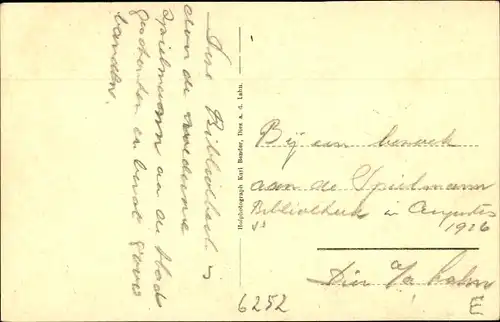 Bibliotheek
door de
Spielmann aan de Stad
geschonken en bevat 9000
banden.
Hofphotograph Karl Bender, Diez a. d. Lahn.
Bij een bezoek
aan de Spielmann
Bibliotheek in Augustus
1926
Diez a/d Lahn
6252
E